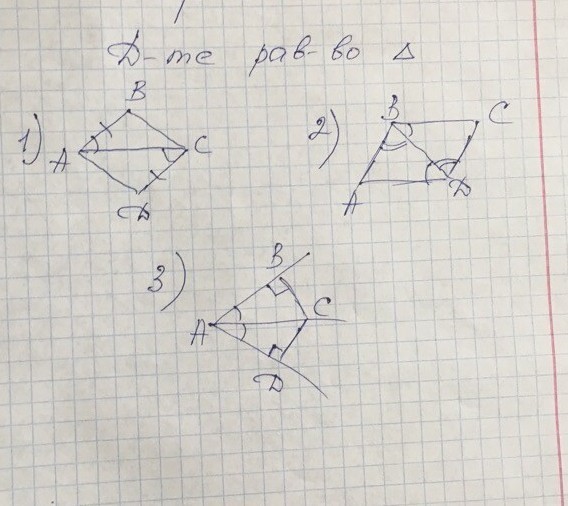 Д-те рав-во Δ
B
1)
A
C
D
2)
B
C
A
D
3)
B
A
C
D